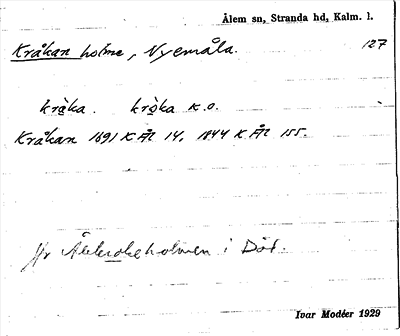 Ålem sn, Stranda hd, Kalm. l.
Kråkan holme, Nyemåla. 127
kråka. kråka K.O.
Kråkan 1691 K Ål 14, 1844 K Ål 155.
Jfr i Död.
Ivar Modéer 1929